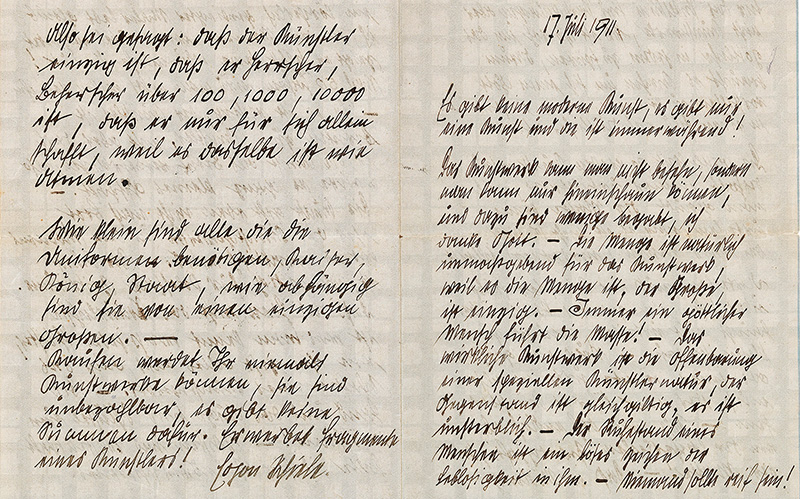 Also sei gesagt: daß der Künstler
einzig ist, daß er Herrscher,
Beherscher über 100, 1000, 10000
ist, daß er nur für sich allein
schafft, weil es dasselbe ist wie
Atmen.
Wie klein sind alle die die
Uniformen benötigen, Kaiser,
König, Staat, wie abhängig
sind sie von einen einzigen
Großen. —
Kaufen werdet Ihr niemals
Kunstwerke können, sie sind
unbezahlbar, es gibt keine
Summen dafür. Erwerbet Fragmente
eines Künstlers!
Egon Schiele.
17. Juli 1911.
Es gibt keine moderne Kunst, es gibt nur
eine Kunst und die ist immerwährend!
Das Kunstwerk kann man nicht besehn, sondern
man kann nur hineinschaun können,
und dazu sind wenige begabt, ich
danke Gott. — Die Menge ist natürlich
unmassgebend für das Kunstwerk,
weil es die Menge ist, der Große
ist einzig. — Immer ein göttlicher
Mensch führt die Masse! — Das
wirkliche Kunstwerk ist die Offenbarung
einer speziellen Künstlernatur, der
Gegenstand ist gleichgiltig, es ist
unsterblich. — Der Ruhestand eines
Menschen ist ein böses Zeichen der
Leblosigkeit in ihm. — Niemand sollte reif sein!